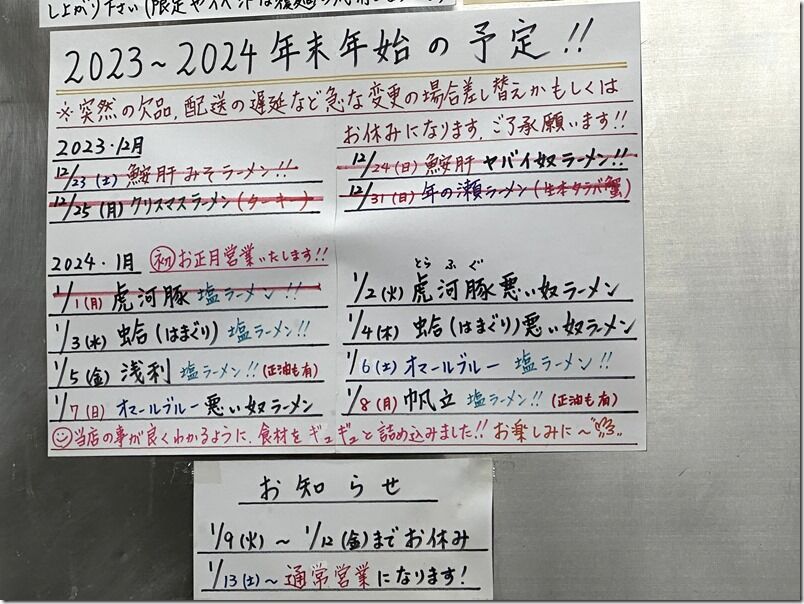 し上がり下さい(限定やイベントは
2023~2024年末年始の予定!!
※突然の欠品、配送の遅延など急な変更の場合差し替えかもしくは
お休みになります。ご了承願います!!
2023・12月
12/23(土) 鮟肝 みそラーメン!!
12/24(日) 鮟肝 ヤバイ奴ラーメン!!
12/25(月) クリスマスラーメン(ターキー)
12/31(日) 年の瀬ラーメン(生本タラバ蟹)
2024・1月 初 お正月営業いたします!!
1/1(月) 虎河豚 塩ラーメン!!
とらふぐ
1/2(火) 虎河豚悪い奴ラーメン
1/3(水) 蛤(はまぐり) 塩ラーメン!!
1/4(木) 蛤(はまぐり)悪い奴ラーメン
1/5(金) 浅利 塩ラーメン!!(正油も有)
1/6(土) オマールブルー 塩ラーメン!!
1/7(日) オマールブルー 悪い奴ラーメン
1/8(月) 帆立 塩ラーメン!!(正油も有)
当店の事が良くわかるように、食材をギュギュと詰め込みました!! お楽しみに~
お知らせ
1/9(火)~1/12(金)までお休み
1/13(土)~通常営業になります!